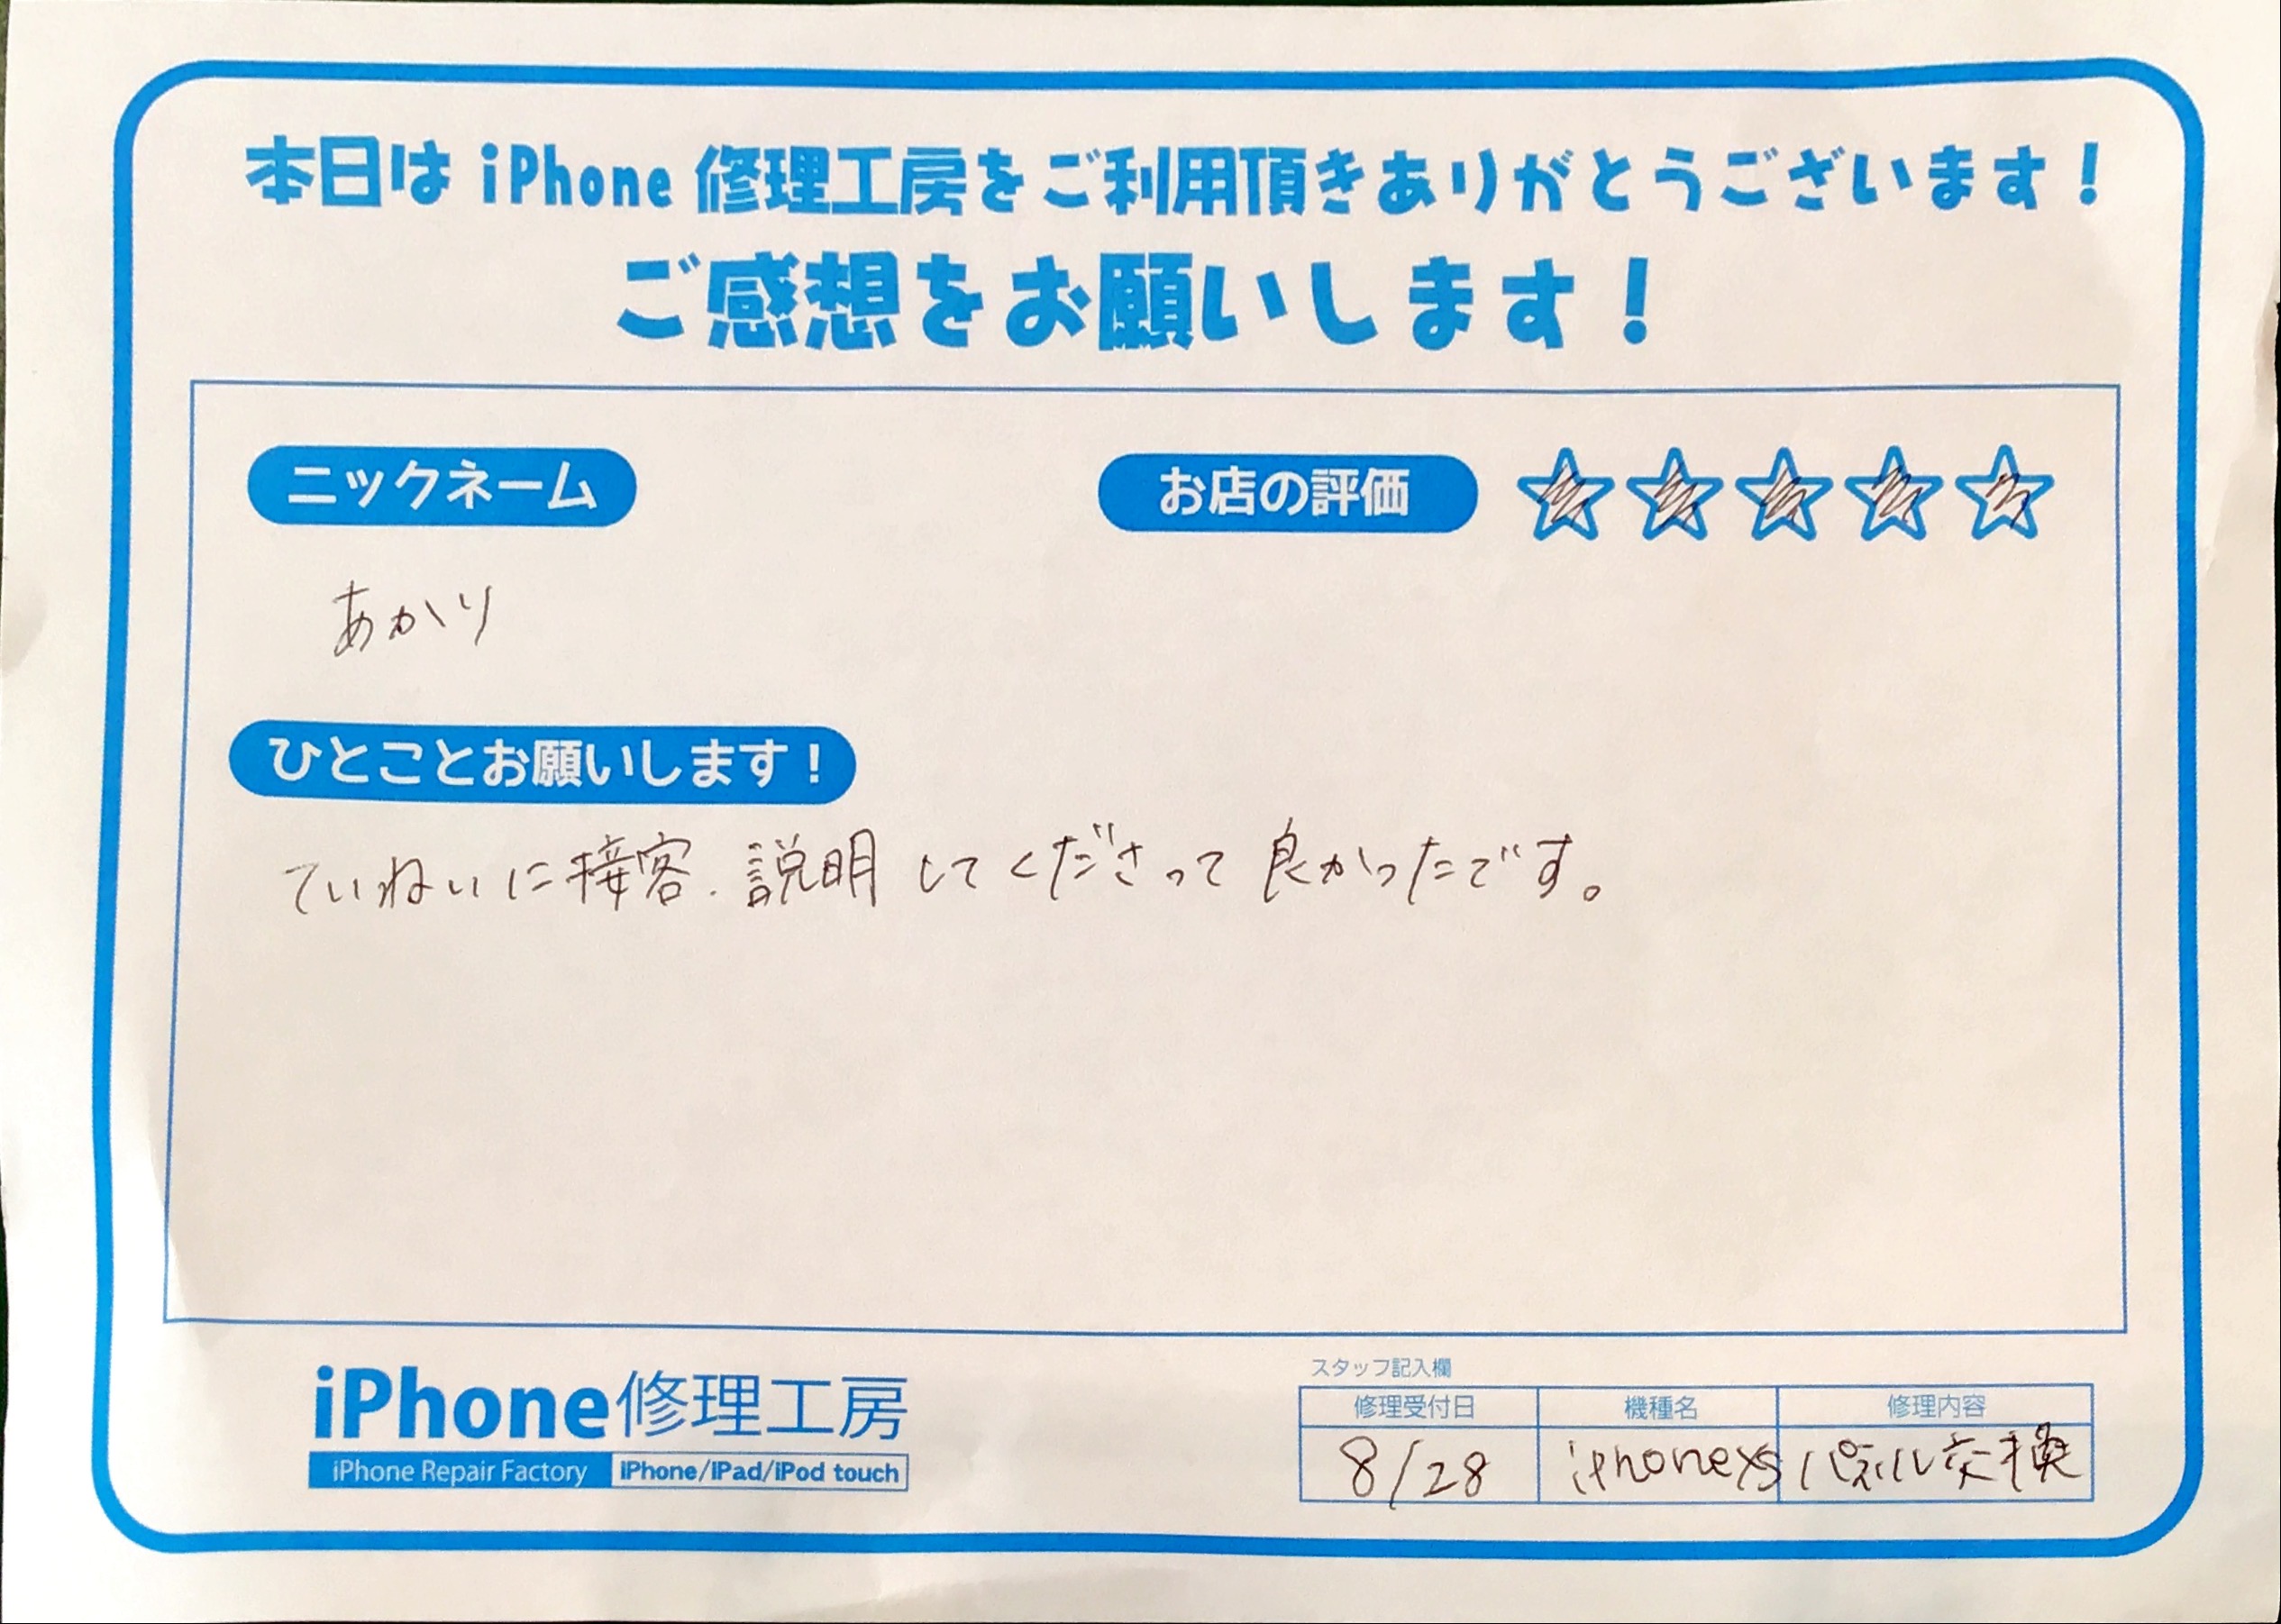 本日は iPhone 修理工房をご利用頂きありがとうございます！
ご感想をお願いします！
ニックネーム
お店の評価
あかり
ひとことお願いします！
ていねいに接客、説明してくださって良かったです。
iPhone修理工房
iPhone Repair Factory iPhone/iPad/iPod touch
スタッフ記入欄
修理受付日 機種名 修理内容
8/28 iphonexs パネル交換